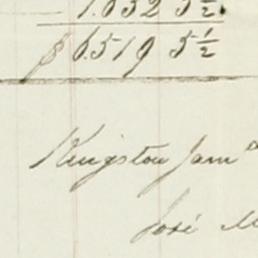 1.632 5½
$ 6.519 5½
Kingston Jamª
José M